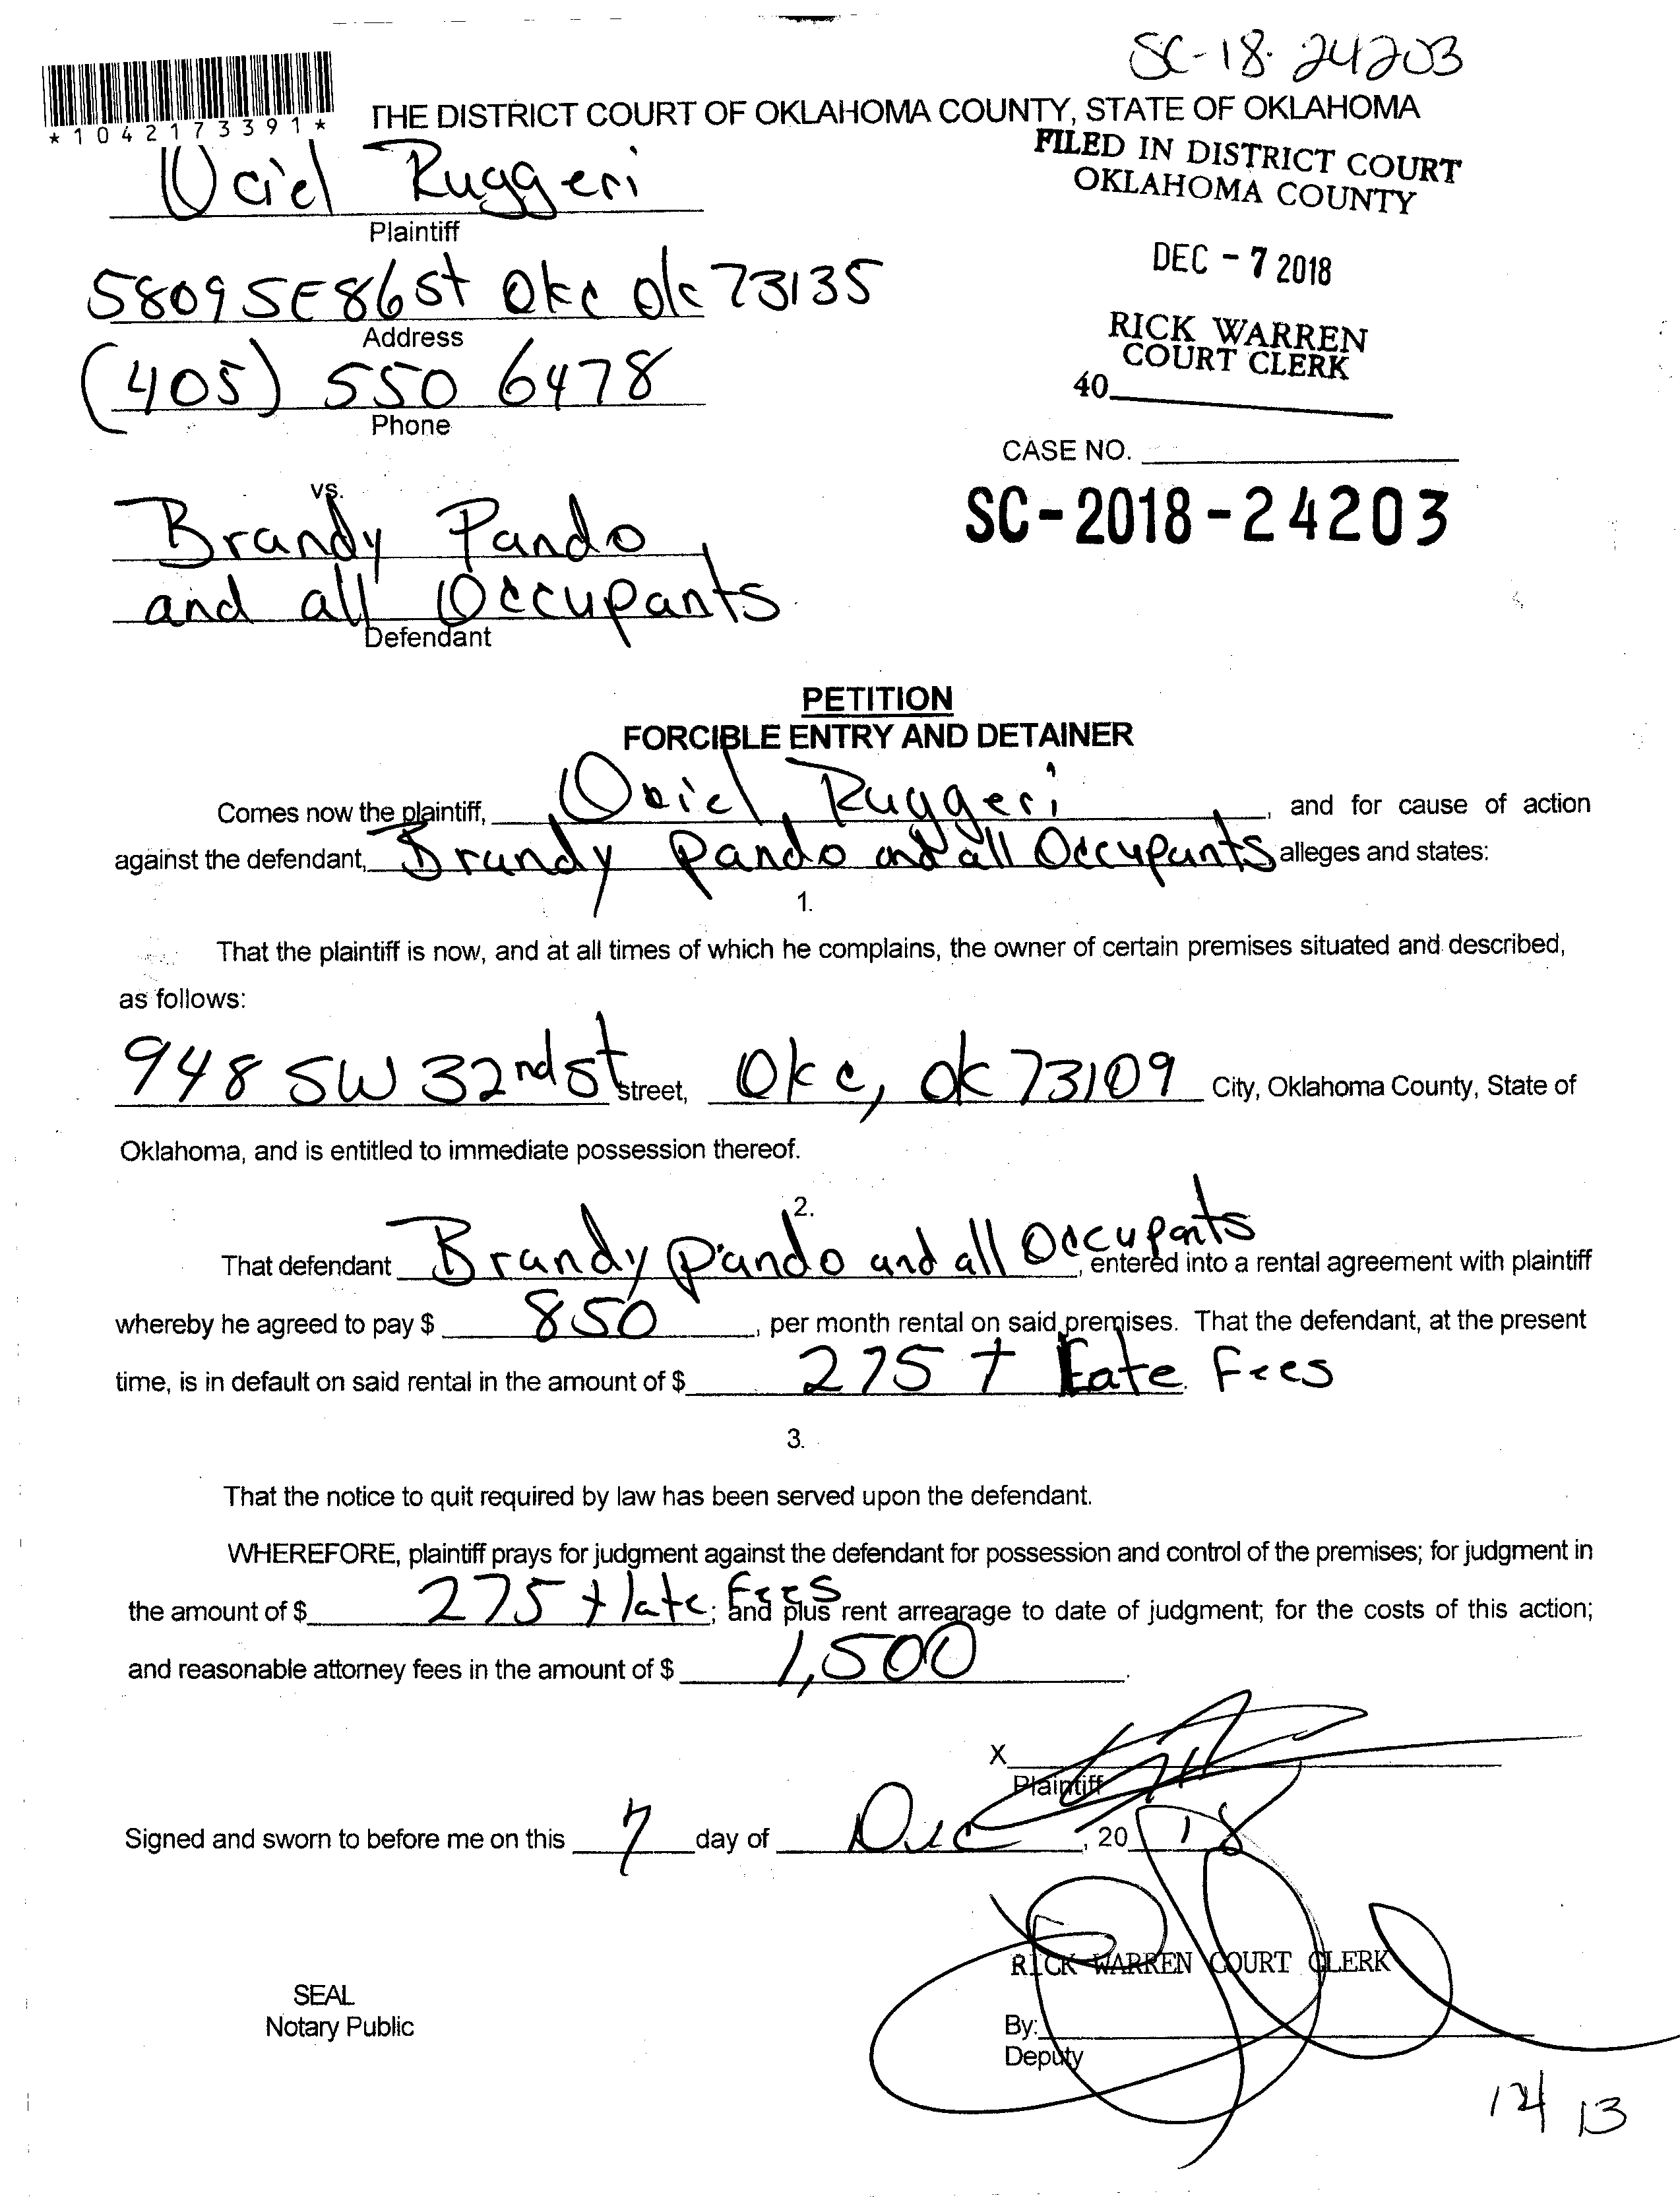 SC-18-24203
*1042173391*
THE DISTRICT COURT OF OKLAHOMA COUNTY, STATE OF OKLAHOMA
FILED IN DISTRICT COURT
OKLAHOMA COUNTY
Ruggeri
Plaintiff
DEC - 7 2018
5809 SE 86 St Okc Ok 73135
Address
RICK WARREN
COURT CLERK
40
(405) 550 6478
Phone
CASE NO.
vs.
SC-2018-24203
Brandy Pando
and all Occupants
Defendant
PETITION
FORCIBLE ENTRY AND DETAINER
Comes now the plaintiff, Ruggeri, and for cause of action
against the defendant, Brandy Pando and all Occupants alleges and states:
1.
That the plaintiff is now, and at all times of which he complains, the owner of certain premises situated and described,
as follows:
948 SW 32nd St street, Okc, ok 73109 City, Oklahoma County, State of
Oklahoma, and is entitled to immediate possession thereof.
2.
That defendant Brandy Pando and all Occupants, entered into a rental agreement with plaintiff
whereby he agreed to pay $ 850, per month rental on said premises. That the defendant, at the present
time, is in default on said rental in the amount of $ 275 + Late Fees.
3.
That the notice to quit required by law has been served upon the defendant.
WHEREFORE, plaintiff prays for judgment against the defendant for possession and control of the premises; for judgment in
the amount of $ 275 + late Fees; and plus rent arrearage to date of judgment; for the costs of this action;
and reasonable attorney fees in the amount of $ 1,500.
X
Plaintiff
Signed and sworn to before me on this 7 day of Dec, 20 18
RICK WARREN COURT CLERK
SEAL
Notary Public
By:
Deputy
12/13